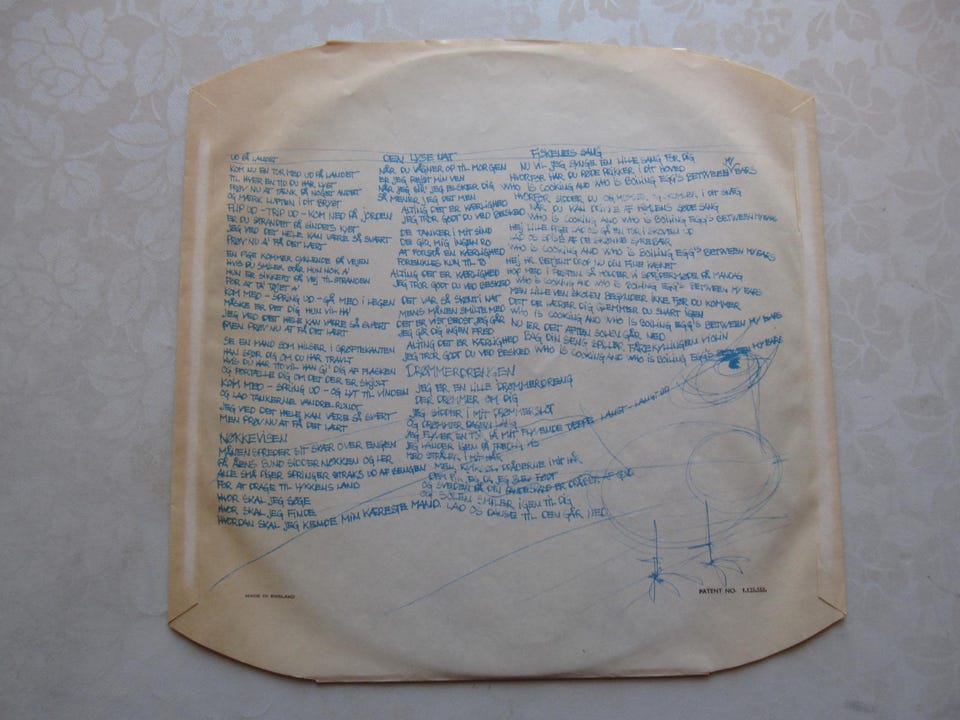 UD PÅ LANDET
KOM NU EN TOR MED UD PÅ LANDET
TIL HVER EN TID DU HAR LYST
PRØV NU AT TÆNK PÅ NOGET ANDET
OG MÆRK LUFTEN I DIT BRYST
FLIP UD - TRIP UD - KOM NED PÅ JORDEN
ER DU STRANDET PÅ SINDETS KYST
JEG VED DET HELE KAN VÆRE SÅ SVÆRT
PRØV NU A' FÅ DET LÆRT
EN PIGE KOMMER CYKLENDE PÅ VEJEN
HVIS DU SMILER GÅR HUN NOK A'
HUN ER SIKKERT PÅ VEJ TIL STRANDEN
FOR AT TA' TØJET A'
KOM MED - SPRING UD - GÅ MED I LEGEN
MÅSKE ER DET DIG HUN VIL HA'
JEG VED DET HELE KAN VÆRE SÅ SVÆRT
MEN PRØV NU AT FÅ DET LÆRT
SE EN MAND SOM HILSER I GRØFTEKANTEN
HAN SPØR DIG OM DU HAR TRAVLT
HVIS DU HAR TID VIL HAN GI' DIG AF FLASKEN
OG FORTÆLLE DIG OM DET DER ER SKJULT
KOM MED - SPRING UD - OG LYT TIL VINDEN
OG LAD TANKERNE VANDRE RUNDT
JEG VED DET HELE KAN VÆRE SÅ SVÆRT
MEN PRØV NU AT FÅ DET LÆRT
NØKKEVISEN
MÅNEN SPREDER SIT SKÆR OVER ENGEN
PÅ ÅENS BUND SIDDER NØKKEN OG LER
ALLE SMÅ PIGER SPRINGER STRAKS UD AF SENGEN
FOR AT DRAGE TIL LYKKENS LAND
HVOR SKAL JEG SØGE
HVOR SKAL JEG FINDE
HVORDAN SKAL JEG KENDE MIN KÆRESTE MAND
DEN LYSE NAT
NÅR DU VÅGNER OP TIL MORGEN
ER JEG REJST MIN VEN
NÅR JEG GÅR JEG BESKER DIG
SÅ MENER JEG DET MEN
ALTING DET ER KÆRLIGHED
JEG TROR GODT DU VED BESKED
DE TANKER I MIT SIND
DE GIR MIG INGEN RO
AT FORSTÅ EN KÆRLIGHED
FORENKLES KUN TIL TO
ALTING DET ER KÆRLIGHED
JEG TROR GODT DU VED BESKED
DET VAR SÅ SKØNT I NAT
MENS MÅNEN SMILTE MED
DET ER VIST BEDST JEG GÅR
JEG GIR DIG INGEN FRED
ALTING DET ER KÆRLIGHED
JEG TROR GODT DU VED BESKED
DRØMMERDRENGEN
JEG ER EN LILLE DRØMMERDRENG
DER DRØMMER OM DIG
JEG SIDDER I MIT DRØMMESLOT
OG DRØMMER DAGEN LANG
JEG FLYVER EN TUR PÅ MIT FLYVENDE TÆPPE LANGT - LANGT UD
JEG LANDER IGEN PÅ
MED STRÅLER I MIT HÅR
MEN DRÅBERNE I MIT HÅR
OG SVEDEN PÅ DIN
OG SOLEN SMILER IGEN TIL DIG
LAD OS DANSE TIL DEN GÅR NED
FISKENES SANG
NU VIL JEG SYNGE EN LILLE SANG FOR DIG
HVORFOR HAR DU RØDE PRIKKER I DIT HOVED
WHO IS COOKING AND WHO IS BOILING EGG'S BETWEEN MY EARS
HVORFOR SIDDER DU OG I DIT SKÆG
NÅR DU KAN DRIKKE AF HIMLENS SØDE SANG
WHO IS COOKING AND WHO IS BOILING EGG'S BETWEEN MY EARS
HEJ LILLE PIGE LAD OS GÅ EN TOR I SKOVEN UD
LAD OS SPISE AF DE SKØNNE SYREBÆR
WHO IS COOKING AND WHO IS BOILING EGG'S BETWEEN MY EARS
HEJ HR. BETJENT DROP NU DIN FINE KASKET
HOP MED I FRISTEN SÅ HOLDER VI SPEJDERMØDE PÅ MANDAG
WHO IS COOKING AND WHO IS BOILING EGG'S BETWEEN MY EARS
MEN LILLE VEN SKOLEN BEGYNDER IKKE FØR DU KOMMER
DET DE LÆRER DIG GLEMMER DU SNART IGEN
WHO IS COOKING AND WHO IS BOILING EGG'S BETWEEN MY EARS
NU ER DET AFTEN SOLEN GÅR NED
BAG DIN SENG SPILLER FÅREKYLLINGEN VIOLIN
WHO IS COOKING AND WHO IS BOILING EGG'S BETWEEN MY EARS
MADE IN ENGLAND
PATENT NO. 1,125,555.